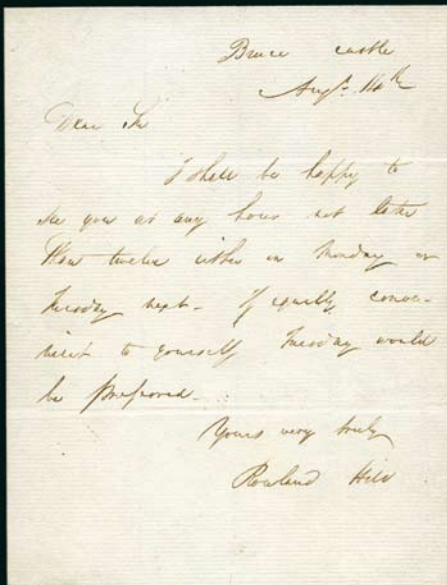 Bruce Castle
Augt. 14th
Dear Sir
I shall be happy to
see you at any hour not later
than twelve either on Monday or
Tuesday next. If equally conve-
nient to yourself Tuesday would
be preferred.
Yours very truly
Rowland Hill